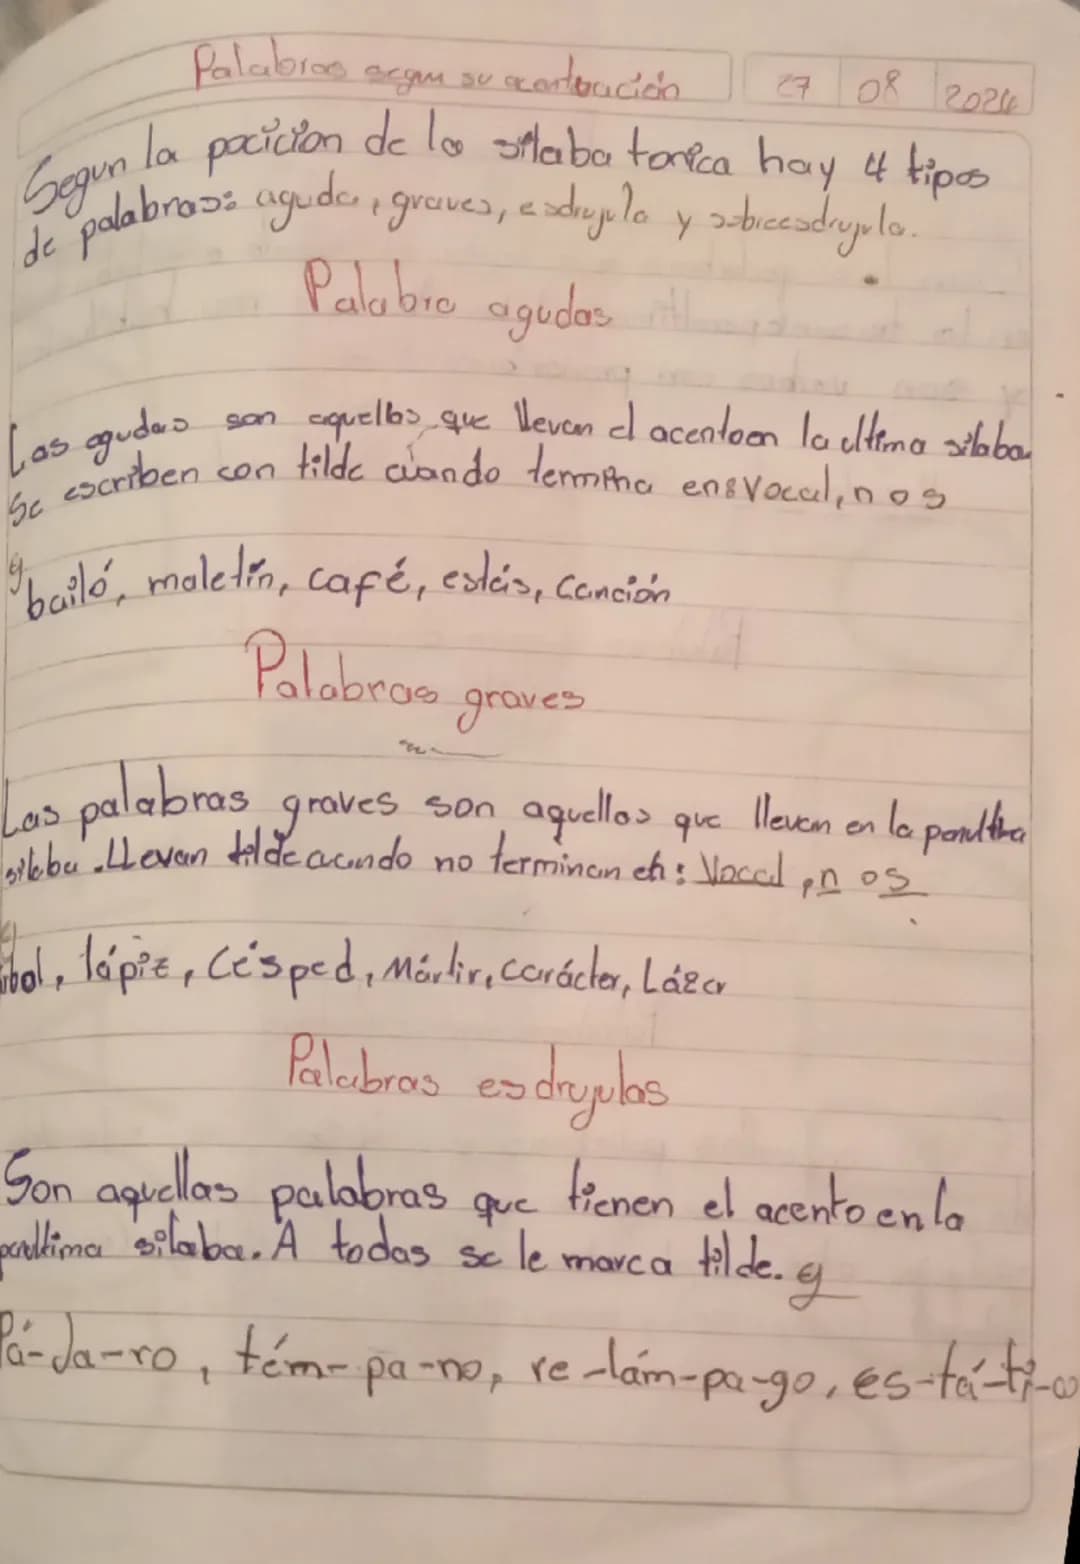 Palabras segun su acentuación 27 08 2024
Segun la pocicion de la silaba tonica hay 4 tipos
de palabras: aguda, graves, esdrujula y sobreesdrujula.
Palabra agudas
Las agudas son aquellas que llevan el acento en la ultima silaba
Se escriben con tilde cuando termina en: vocal, n o s
ej
bailó, maletín, café, estás, Canción
Palabras graves
Las palabras graves son aquellas que llevan en la penultima
silaba. LLevan tilde cuando no terminan en: Vocal, n o s
ej
rbol, lápiz, Césped, Mártir, Carácter, Lázer
Palabras esdrujulas
Son aquellas palabras que tienen el acento en la
silaba. A todas se le marca tilde. ej
Pá-Ja-ro, tém-pa-no, re-lám-pa-go, es-tá-ti-co